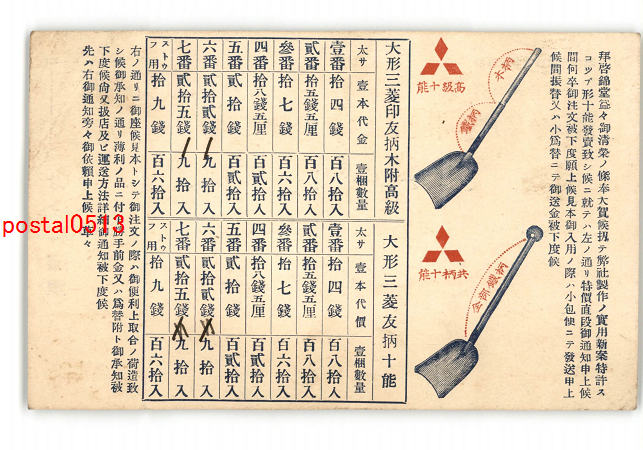 拝啓錦堂益々御清榮ノ條奉大賀候扨テ弊社製作ノ實用新案特許ス
コップ形十能發賣致シ候ニ就テハ左ノ通リ特價直段御通知申上候
間何卒御注文被下度願上候見本御入用ノ際ハ小包便ニテ發送申上
候間振替又ハ小爲替ニテ御送金被下度候
高級十能
木柄
鐵柄
共柄十能
全部鐵柄
大形三菱印友柄木附高級
太サ 壹本代金 壹梱數量
壹番 拾四錢 百八拾入
貳番 拾五錢五厘 百八拾入
參番 拾七錢 百六拾入
四番 拾八錢五厘 百貳拾入
五番 貳拾錢 百貳拾入
六番 貳拾貳錢 九拾入
七番 貳拾五錢 九拾入
ストゥフ用 拾九錢 百六拾入
大形三菱友柄十能
太サ 壹本代價 壹梱數量
壹番 拾四錢 百八拾入
貳番 拾五錢五厘 百八拾入
參番 拾七錢 百六拾入
四番 拾八錢五厘 百貳拾入
五番 貳拾錢 百貳拾入
六番 貳拾貳錢 九拾入
七番 貳拾五錢 九拾入
ストゥフ用 拾九錢 百六拾入
右ノ通リニ御座候見本トシテ御注文ノ際ハ御便利上取合ノ荷造致
シ候御承知ノ通リ薄利ノ品ニ付キ勝手前金又ハ爲替附ト御承知被
下度候尚又扱店及ビ運送方法詳細御通知被下度候
先ハ右御通知旁々御依頼申上候 草々
postal0513